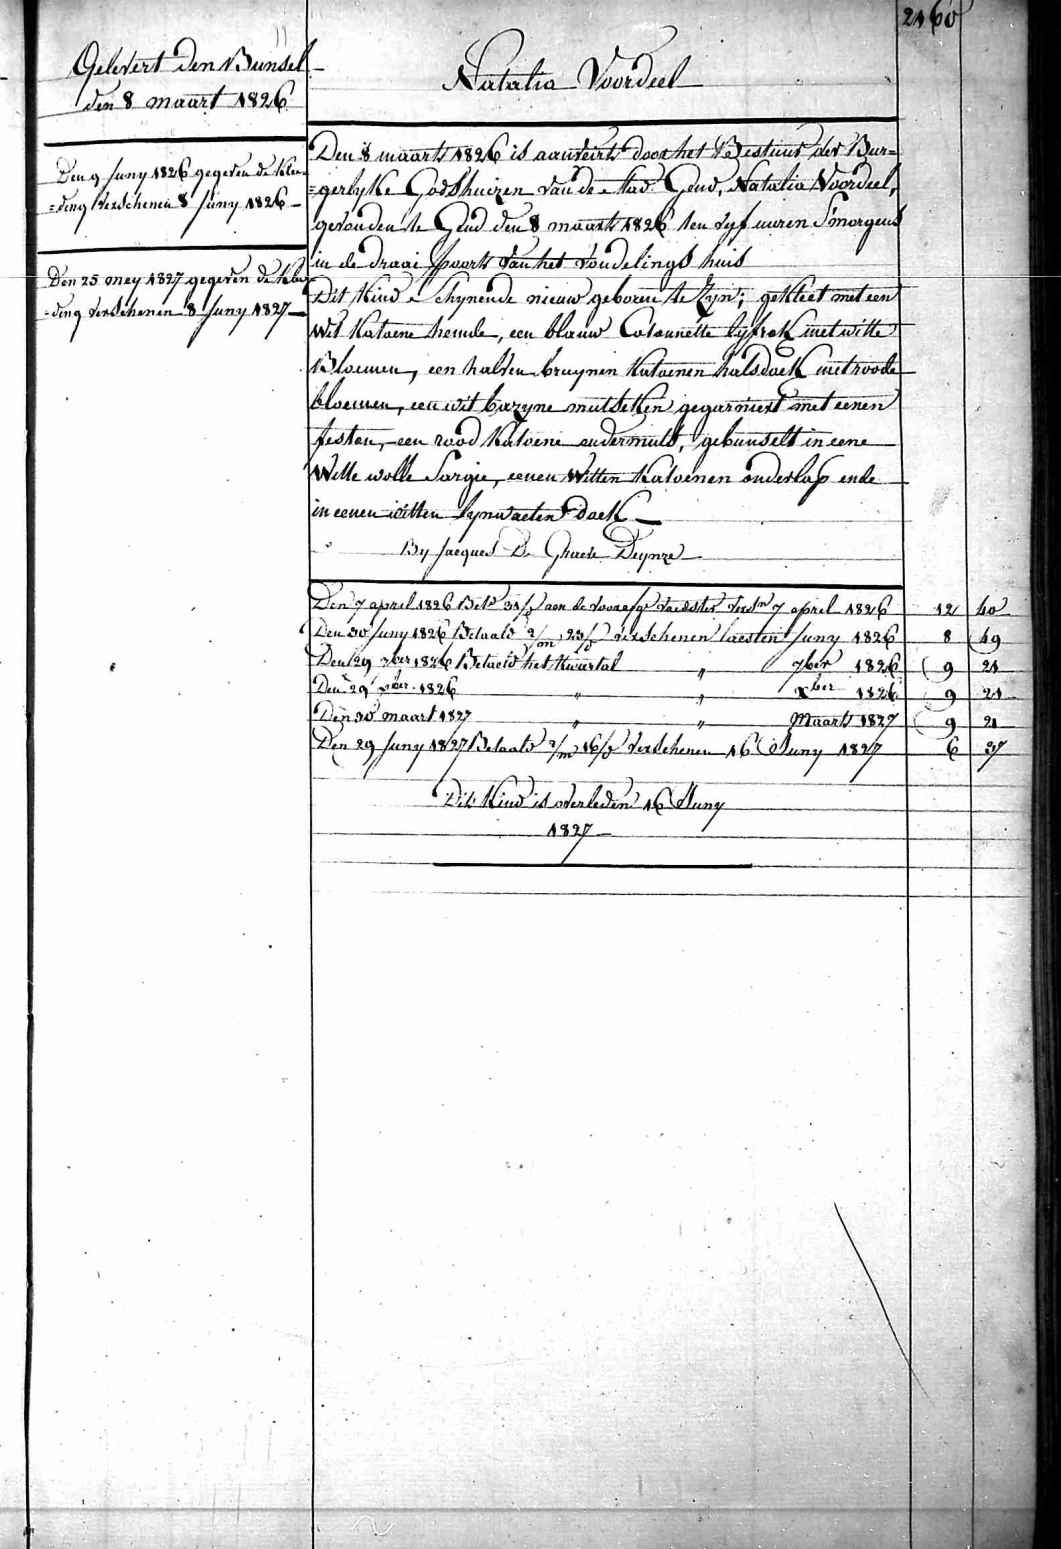 2160
Gelevert den Bunsel
den 8 maart 1826
Den 9 Juny 1826 gegeven de Klee-
=ding verschenen 8 Juny 1826 —
Den 25 mey 1827 gegeven de Klee
=ding verschenen 8 Juny 1827 —
Natalia Voordeel
Den 8 maarts 1826 is aanveirt door het Bestuur der Bur=
=gerlyke Godshuizen van de stad Gend, Natalia Voordeel,
gevonden te Gend den 8 maarts 1826 ten vyf uuren S'morgens
in de draai poorts van het vondelings huis
Dit Kind Schynende nieuw geboren te Zyn; gekleet met een
wit Katoene hemde, een blauw Cotonnette lyfrok met witte
Bloemen, een halven bruynen Katoenen halsdoek met roode
bloemen, een wit bazyne mutseken gegarniert met eenen
feston, een rood Katoene ondermuts, gebunselt in eene
Witte wolle Sargie, eenen Witten Katoenen onderlap ende
in eenen witten lynwaeten doek —
By Jacques De Deynze
Den 7 april 1826 Bet^d 31/ aen de voedster versch^n 7 april 1826 12 40
Den 30 Juny 1826 Betaald 2/m 23/ verschenen laesten Juny 1826 8 49
Den 29 7ber 1826 Betaeld het Kwartal " 7ber 1826 9 21
Den 29 xber 1826 " " xber 1826 9 21
Den 30 maart 1827 " " Maarts 1827 9 21
Den 29 Juny 1827 Betaald 2/m 16/ verschenen 16 Juny 1827 6 37
Dit Kind is overleden 16 Juny
1827 —